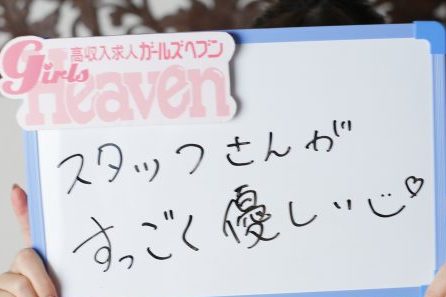 高収入求人ガールズヘブン
Girls
Heaven
スタッフさんが
すっごく優しいじ♡